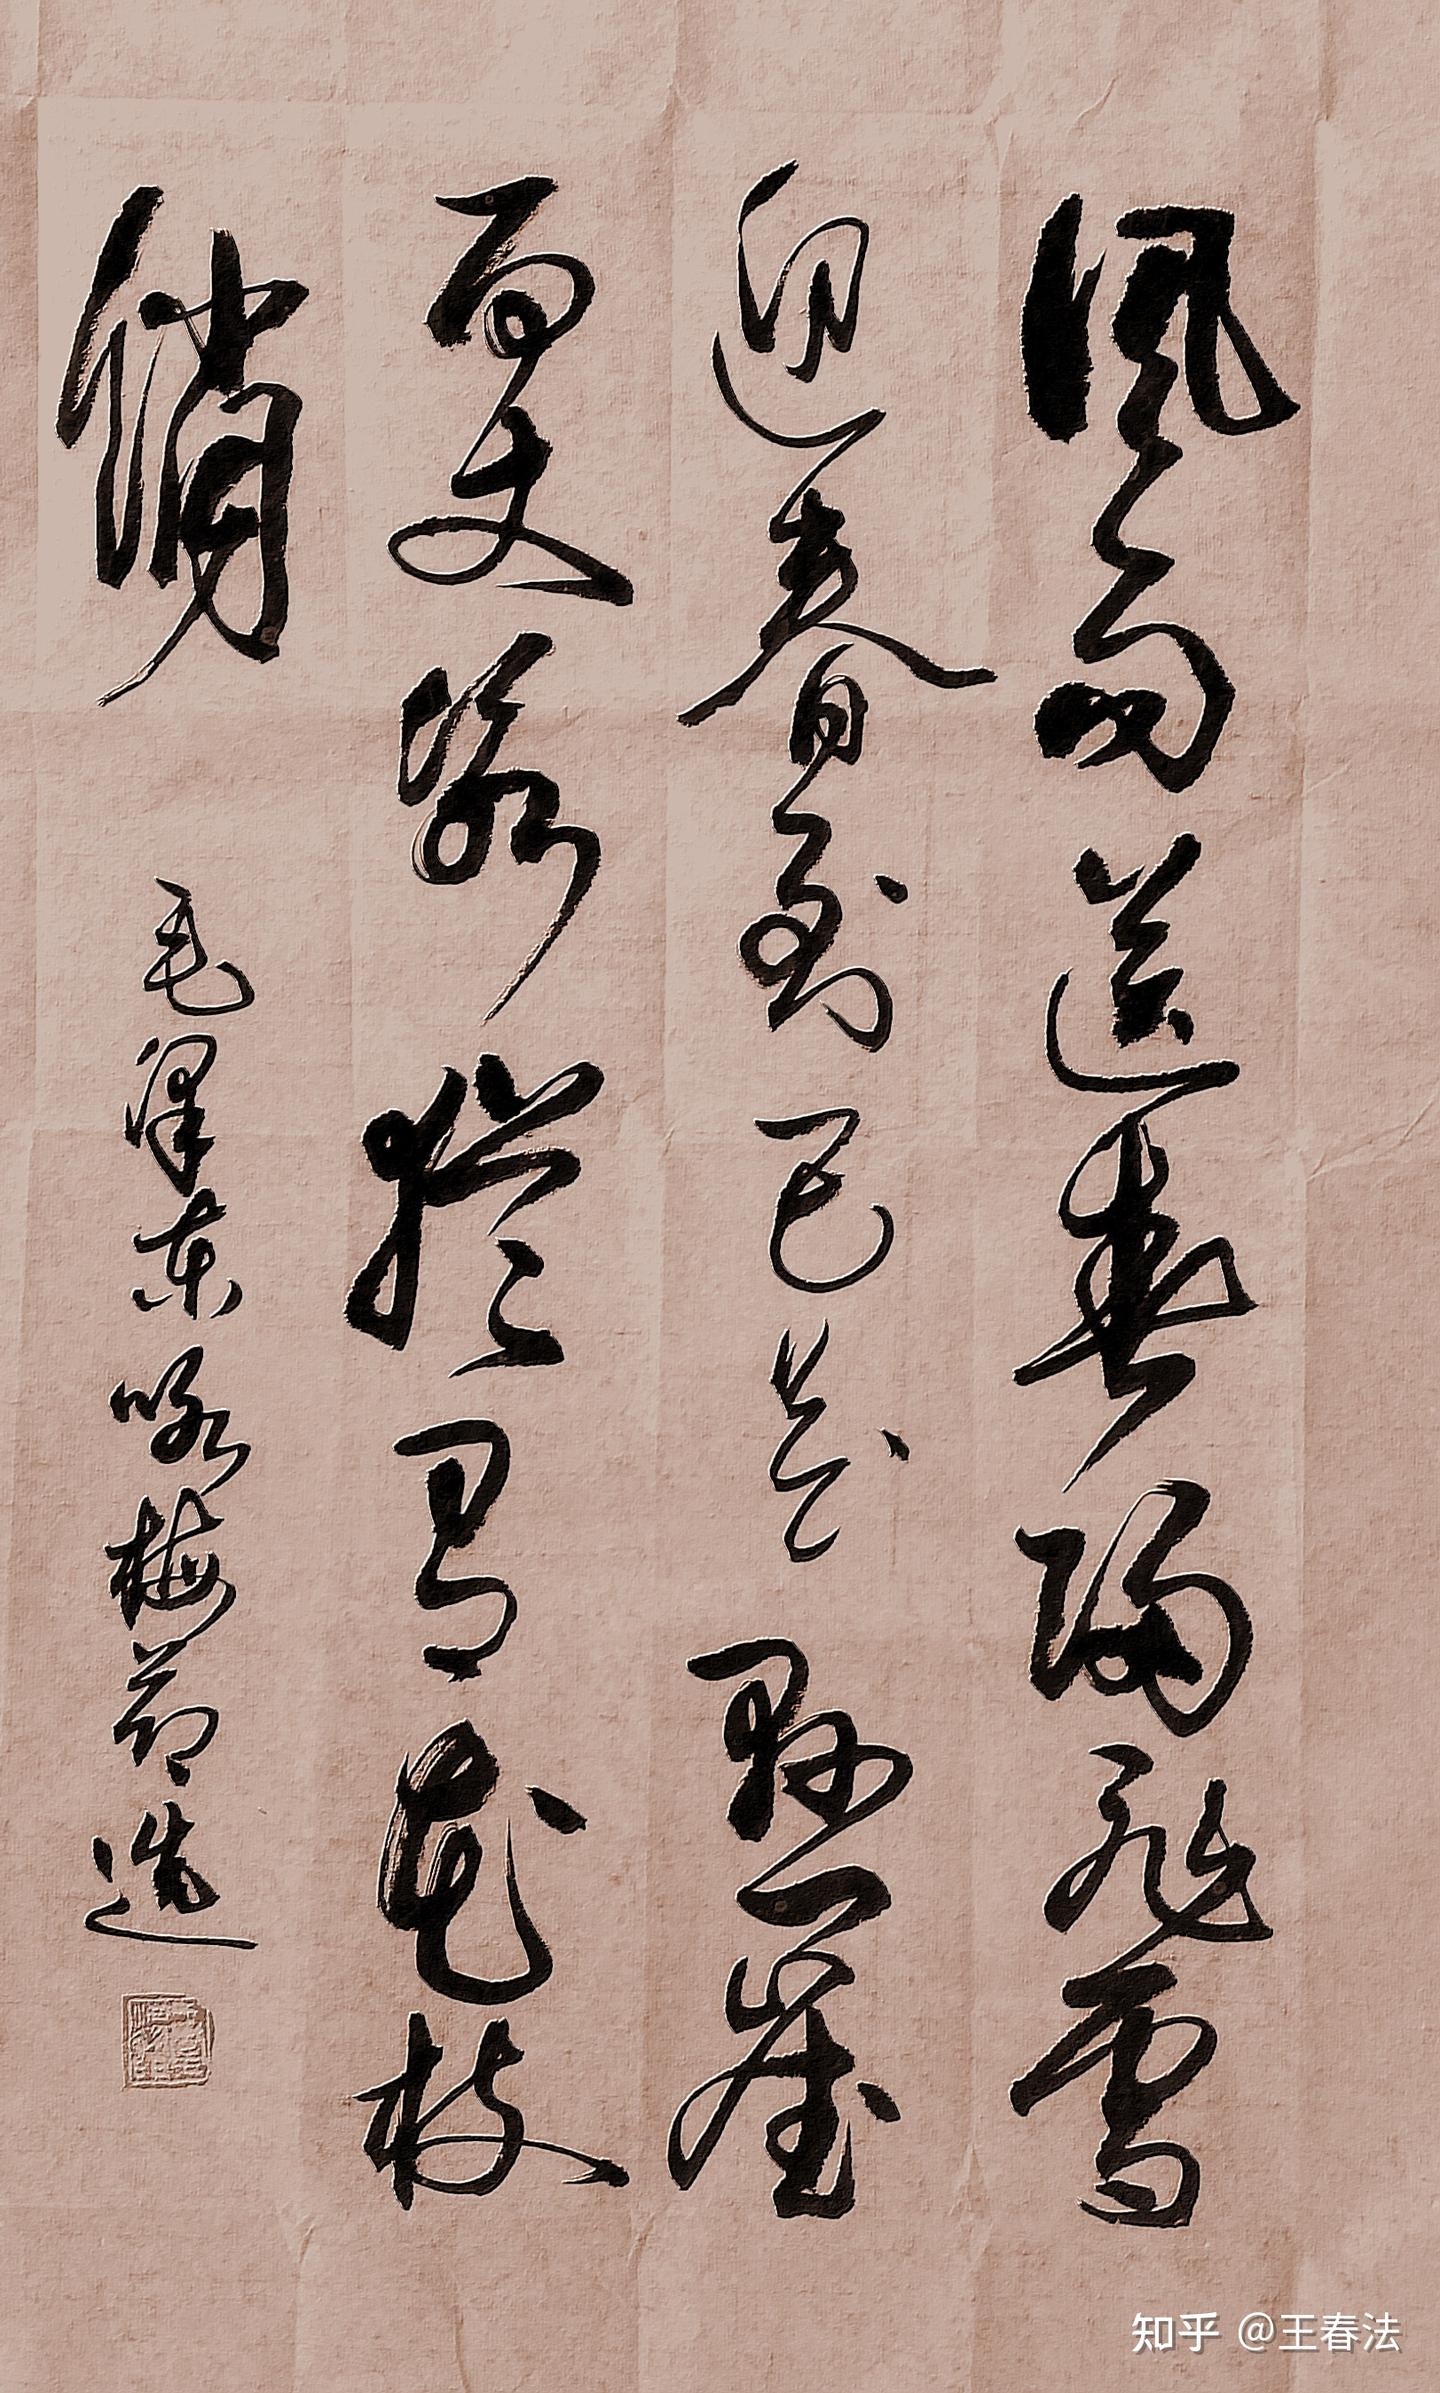 風雨送春歸飛雪
迎春到已是懸崖
百丈冰猶有花枝
俏
毛澤東咏梅節選
知乎 @王春法